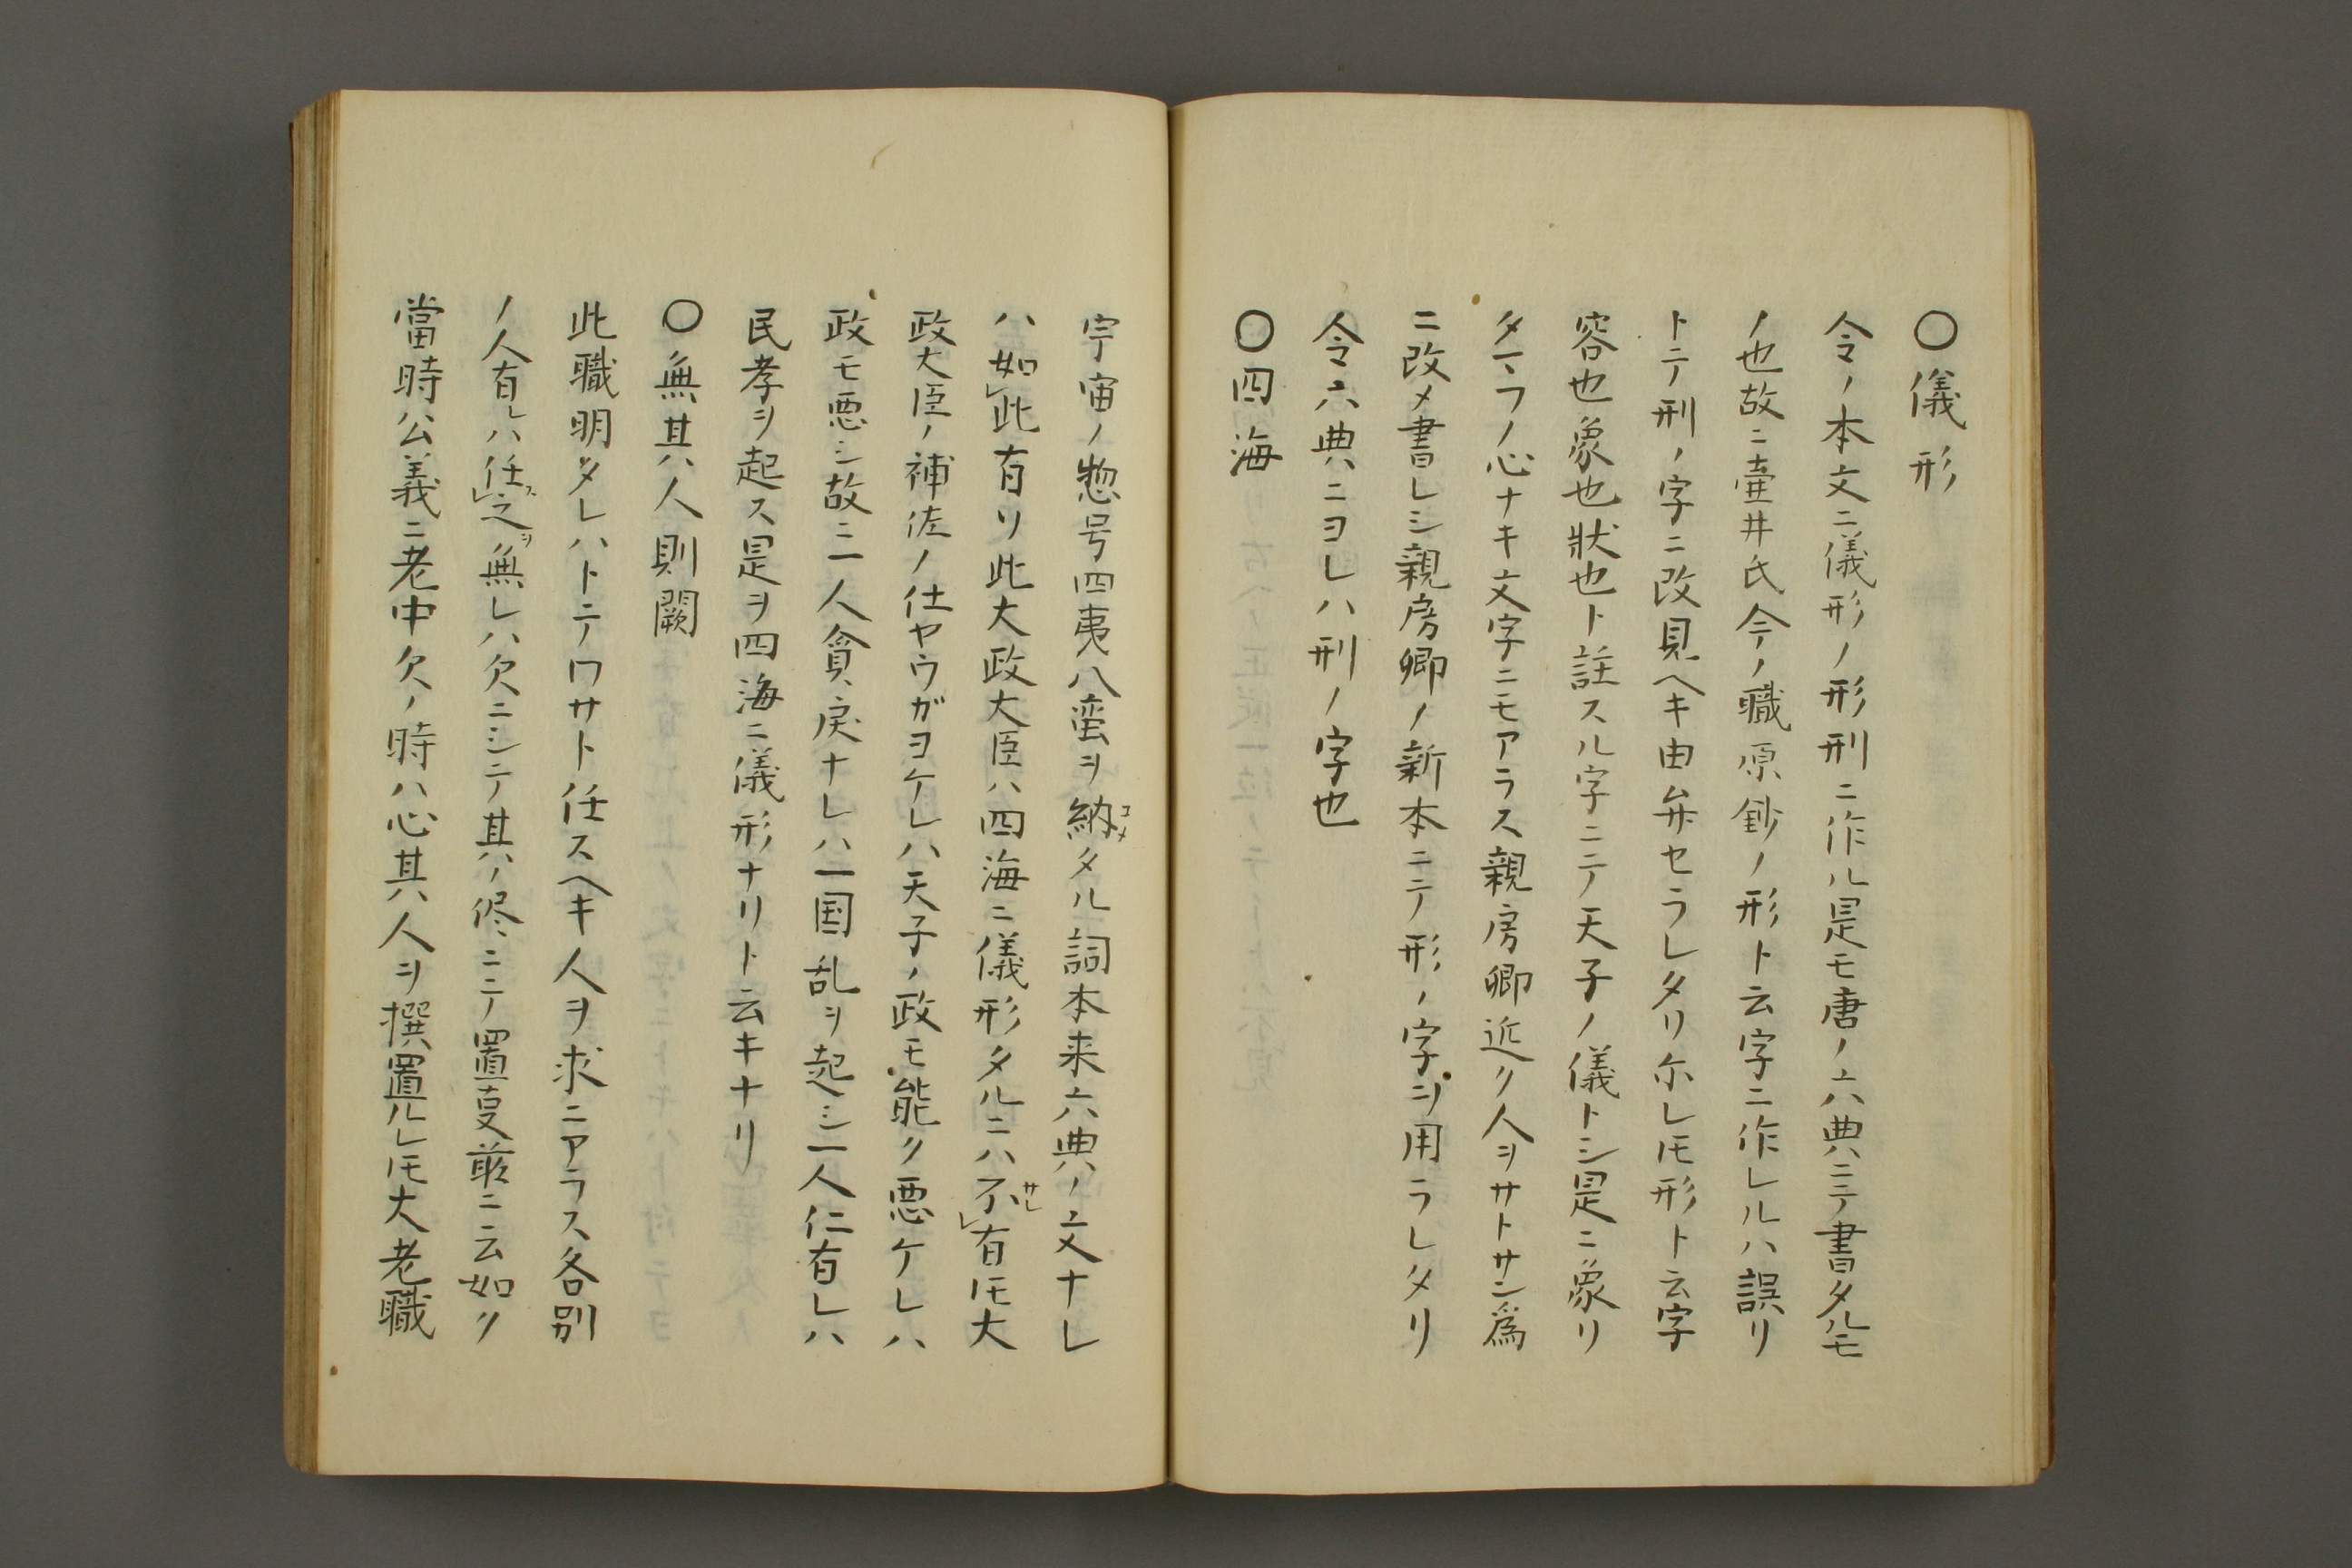 〇儀形
令ノ本文ニ儀形ノ形刑ニ作ル是モ唐ノ六典ニテ書タルモ
ノ也故ニ壷井氏今ノ職原鈔ノ形ト云字ニ作レルハ誤リ
トテ刑ノ字ニ改見ヘキ由弁セラレタリ尓レ𪜈形ト云字
容也象也狀也ト註スル字ニテ天子ノ儀トシ是ニ象リ
タマフノ心ナキ文字ニモアラス親房卿近ク人ヲサトサン爲
ニ改メ書レシ親房卿ノ新本ニテ形ノ字ヲ用ラレタリ
令六典ニヨレハ刑ノ字也
〇四海
宇宙ノ惣号四夷八蛮ヲ納コメタル詞本来六典ノ文ナレ
ハ如レ此有リ此大政大臣ハ四海ニ儀形タルニハ不サレレ有𪜈大
政大臣ノ補佐ノ仕ヤウガヨケレハ天子ノ政モ能ク悪ケレハ
政モ悪シ故ニ一人貪戻ナレハ一国乱ヲ起シ一人仁有レハ
民孝ヲ起ス是ヲ四海ニ儀形ナリト云キナリ
〇無其人則闕
此職明タレハトテワサト任スヘキ人ヲ求ニアラス各別
ノ人有レハ任スレ之ヲ無レハ欠ニシテ其ノ侭ニテ置叓前ニ云如ク
當時公義ニ老中欠ノ時ハ心其人ヲ撰置ルレ𪜈大老職